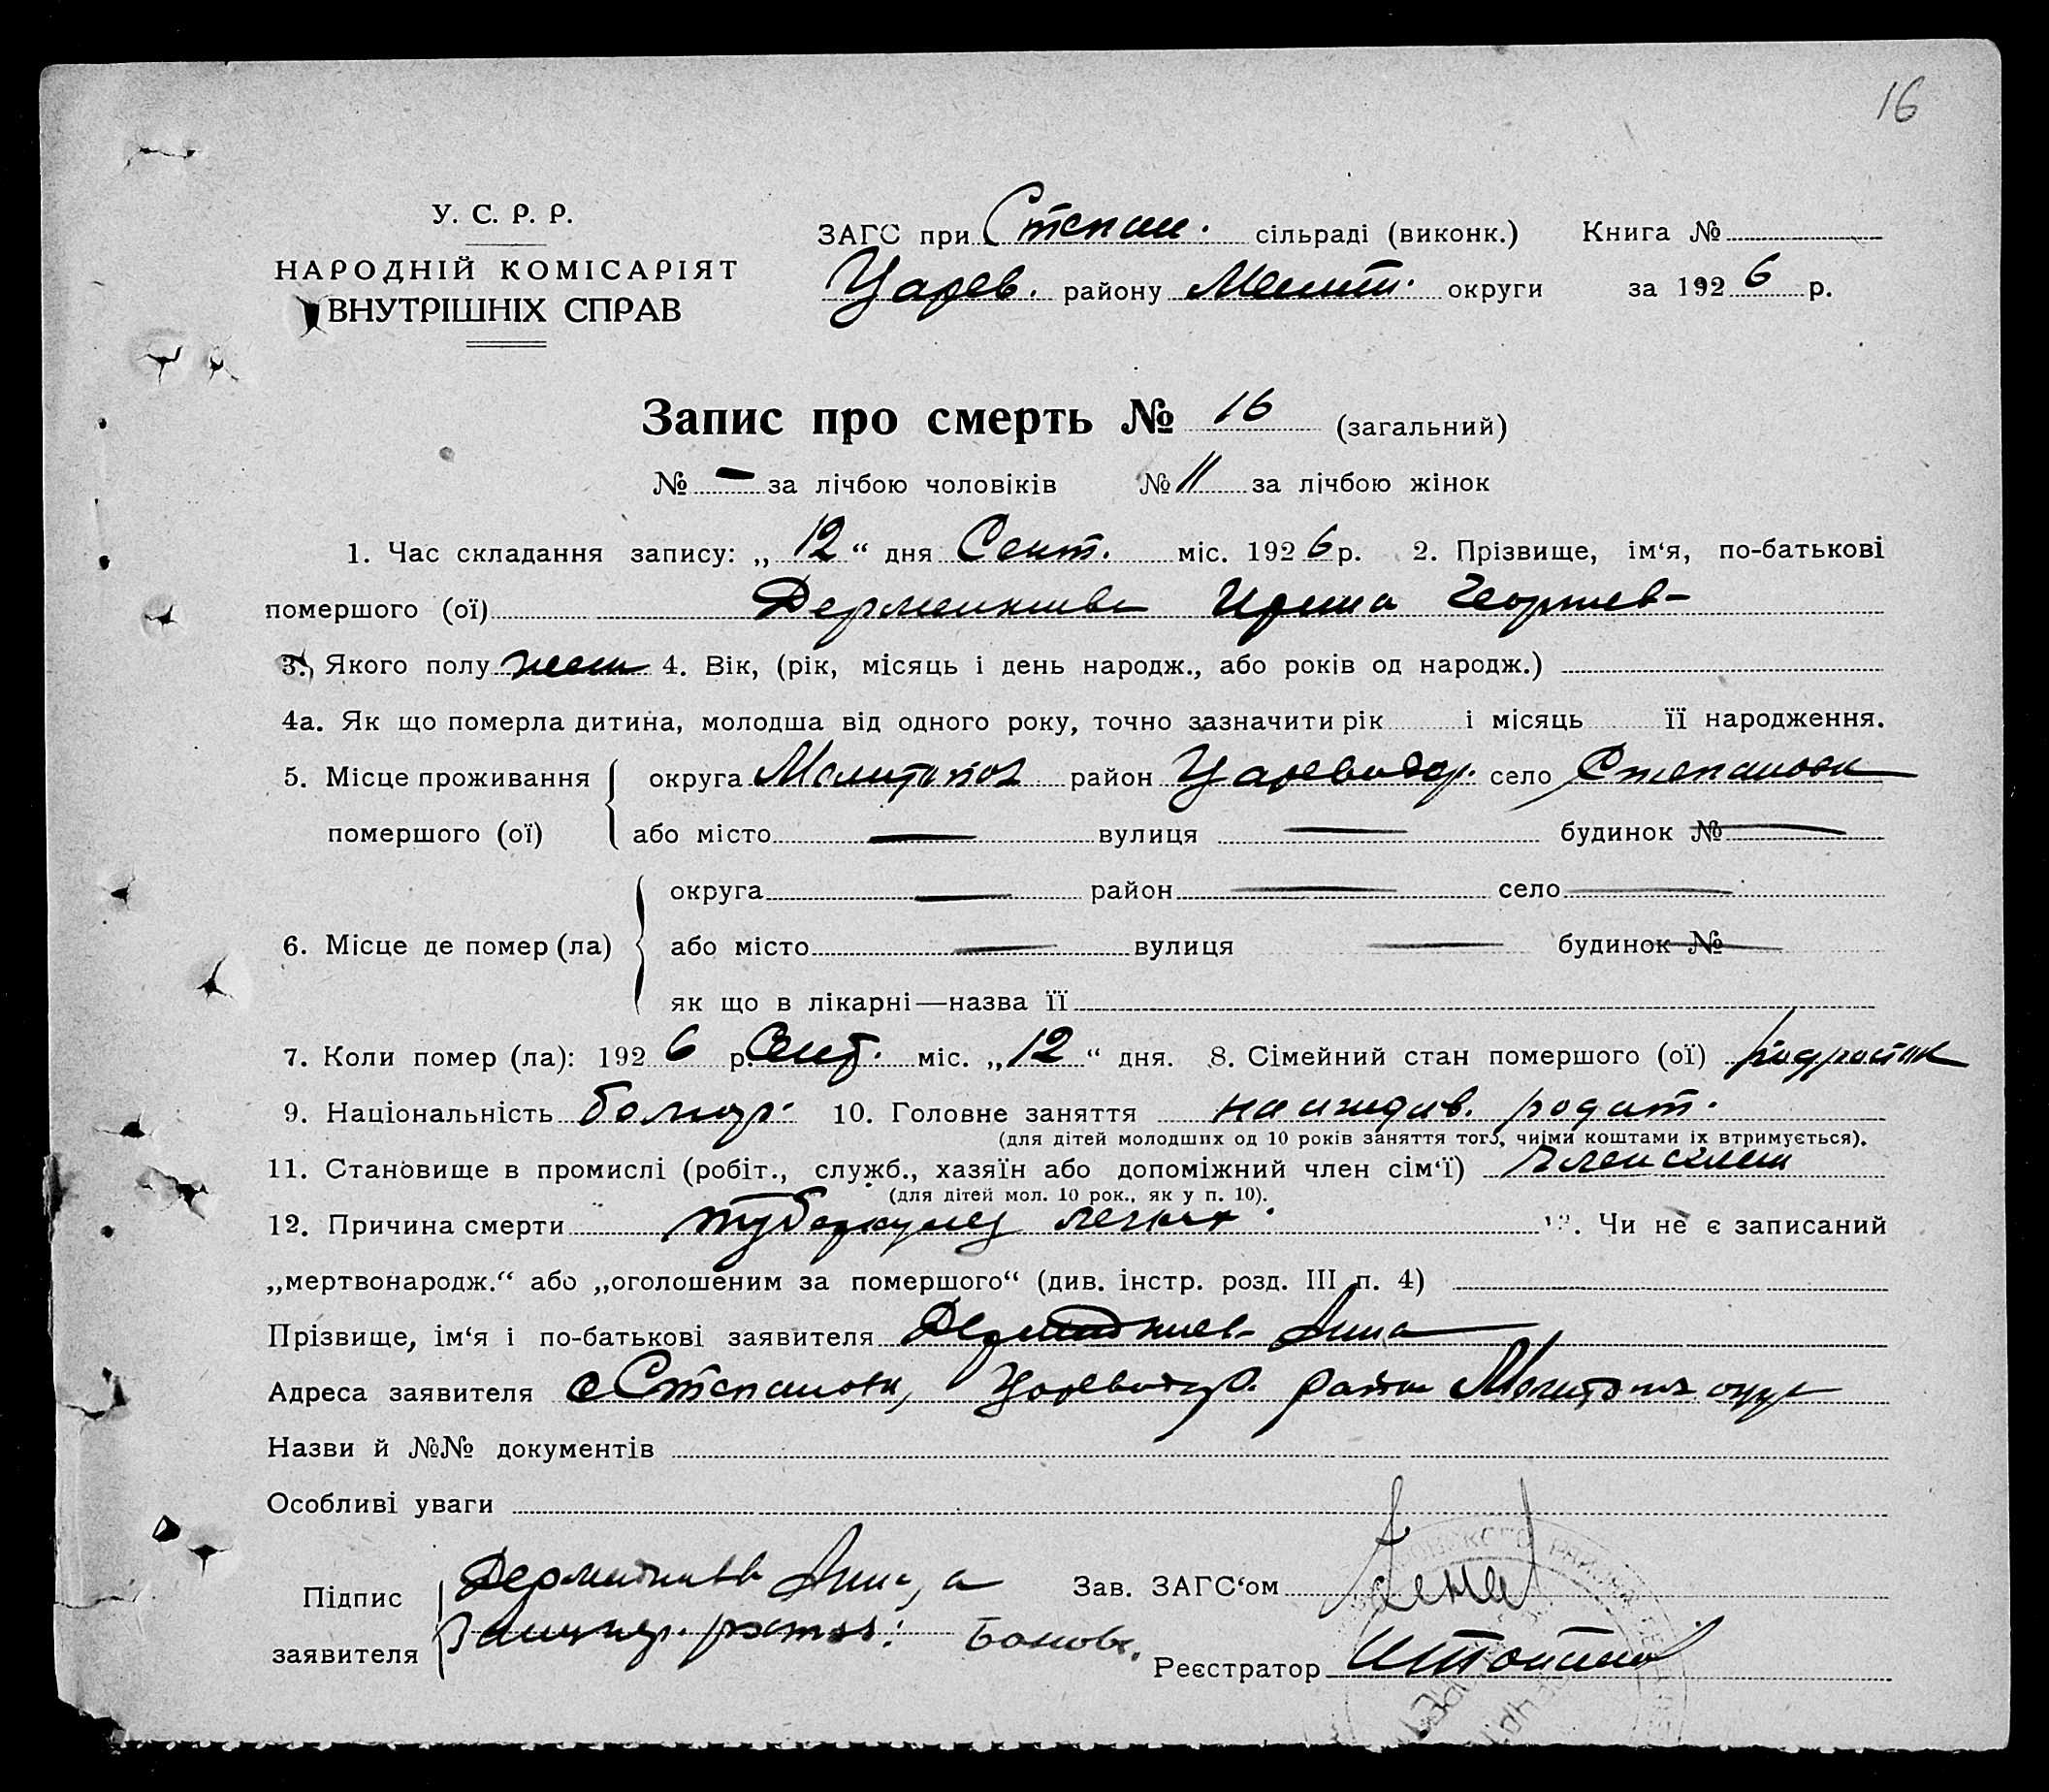 16
У. С. Р. Р.
НАРОДНІЙ КОМІСАРІЯТ
ВНУТРІШНІХ СПРАВ
ЗАГС при Степан. сільраді (виконк.) Книга №
Царев. району Мелит. округи за 1926 р.
Запис про смерть № 16 (загальний)
№ — за лічбою чоловіків № 11 за лічбою жінок
1. Час складання запису: „12“ дня Сент. міс. 1926 р. 2. Прізвище, ім‘я, по-батькові
помершого (ої) Ирина Георгиев-
3. Якого полу жен 4. Вік, (рік, місяць і день народж., або років од народж.)
4а. Як що померла дитина, молодша від одного року, точно зазначити рік і місяць її народження.
5. Місце проживання округа Мелитопол район Цареводар. село Степановка
помершого (ої) або місто — вулиця — будинок № —
округа — район — село —
6. Місце де помер (ла) або місто — вулиця — будинок № —
як що в лікарні—назва її
7. Коли помер (ла): 1926 р. Сент. міс. „12“ дня. 8. Сімейний стан помершого (ої) подросток
9. Національність болгар. 10. Головне заняття на иждив. родит.
(для дітей молодших од 10 років заняття того, чиїми коштами їх втримується).
11. Становище в промислі (робіт., служб., хазяїн або допоміжний член сім‘ї) член семьи
(для дітей мол. 10 рок., як у п. 10).
12. Причина смерти туберкулез легких. 13. Чи не є записаний
„мертвонародж.“ або „оголошеним за помершого“ (див. інстр. розд. III п. 4)
Прізвище, ім‘я і по-батькові заявителя Анна
Адреса заявителя с Степановка, Цареводар. район Мелитопол округ
Назви й №№ документів
Особливі уваги
Підпис Анна, а
заявителя
Зав. ЗАГС‘ом
Реєстратор